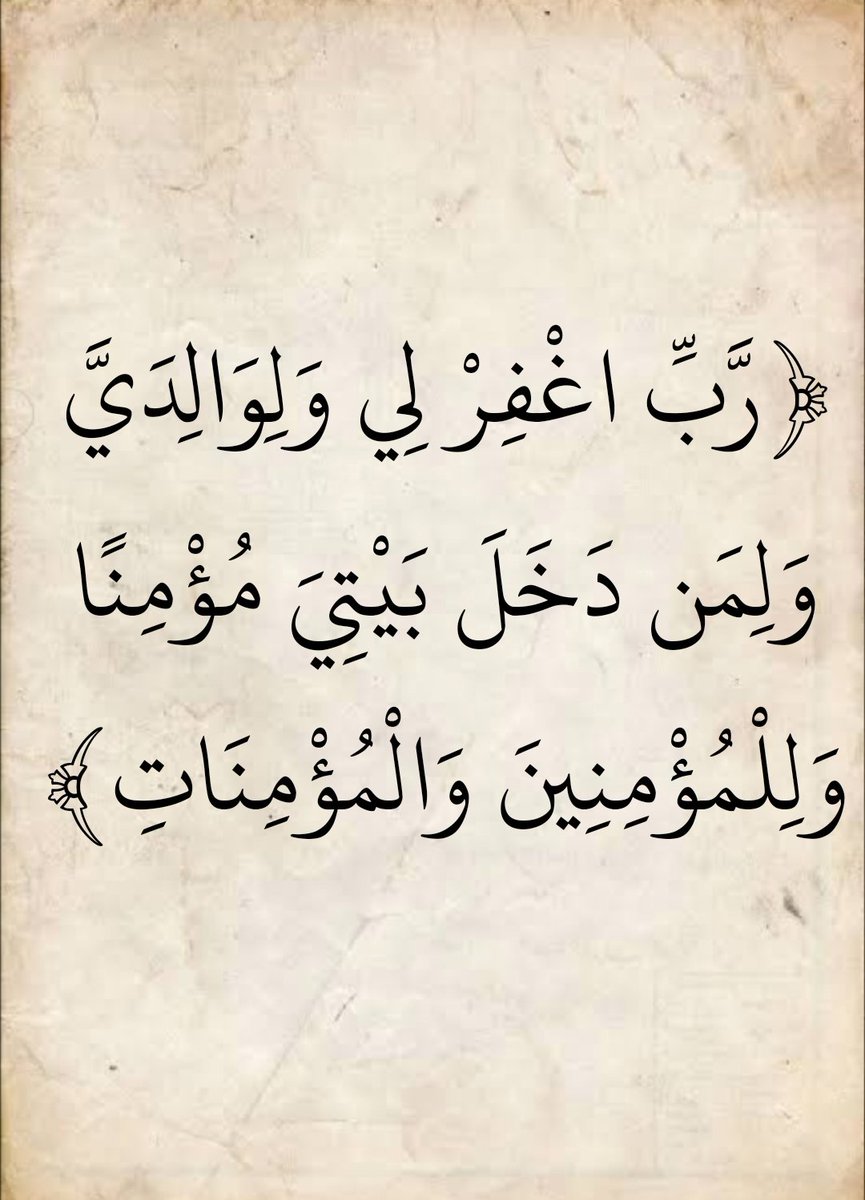 ﴿رَّبِّ اغْفِرْ لِي وَلِوَالِدَيَّ
وَلِمَن دَخَلَ بَيْتِيَ مُؤْمِنًا
وَلِلْمُؤْمِنِينَ وَالْمُؤْمِنَاتِ﴾